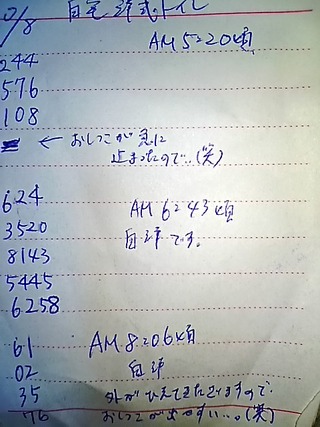 2/8 自宅 洋式トイレ
AM 5:20頃
244
576
108
← おしっこが急に
止まったので…(笑)
624
AM 6:43頃
3520
自洋です。
8143
5445
6258
61 AM 8:06頃
02 自洋
35 外がひえてきますので
76 おしっこが出やすい…。(笑)